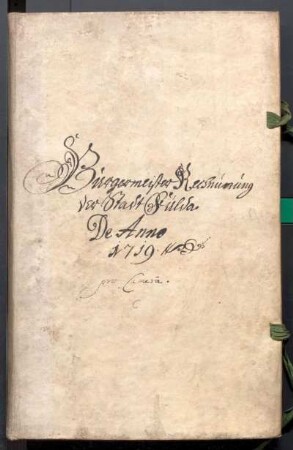 Bürgermeister Rechnung
der Stadt Fulda
De Anno
1719.
pro Camera.